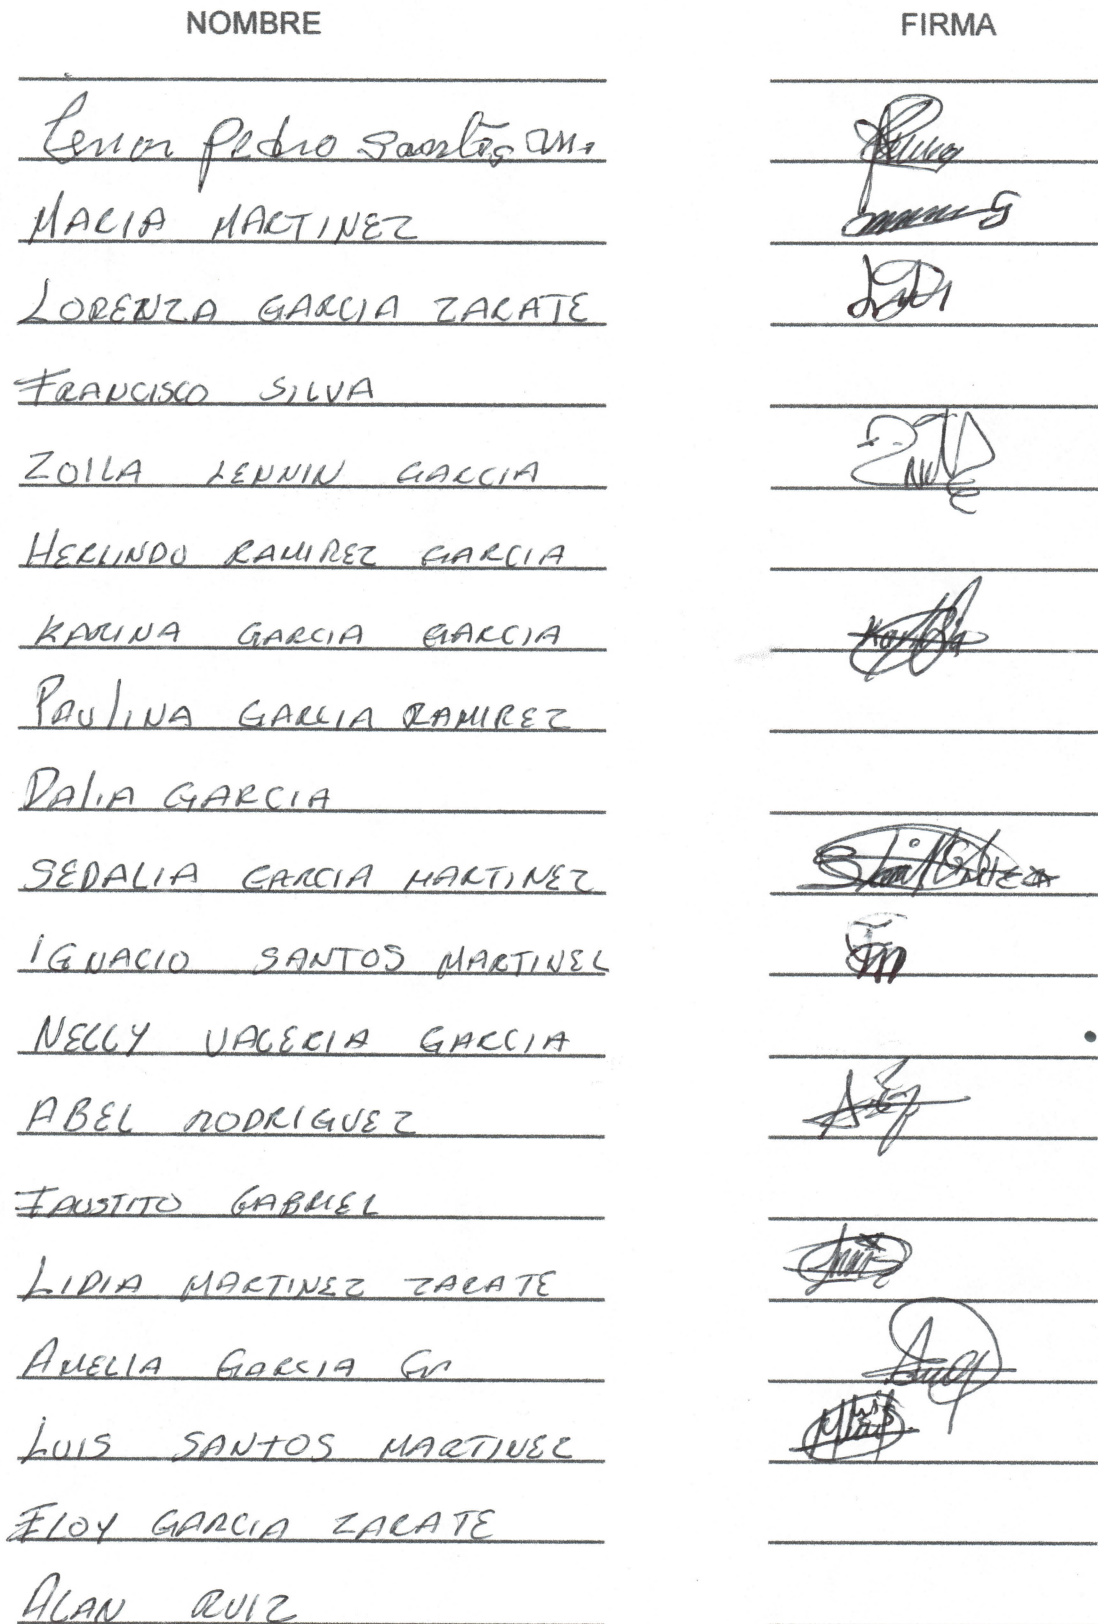 NOMBRE FIRMA
Pedro Santos M.
MARIA MARTINEZ
LORENZA GARCIA ZARATE
FRANCISCO SILVA
ZOILA LENNIN GARCIA
HERLINDO RAMIREZ GARCIA
KARINA GARCIA GARCIA
PAULINA GARCIA RAMIREZ
DALIA GARCIA
SEDALIA GARCIA MARTINEZ
IGNACIO SANTOS MARTINEZ
NELLY VALERIA GARCIA
ABEL RODRIGUEZ
FAUSTITO GABRIEL
LIDIA MARTINEZ ZARATE
AMELIA GARCIA G
LUIS SANTOS MARTINEZ
ELOY GARCIA ZARATE
ALAN RUIZ